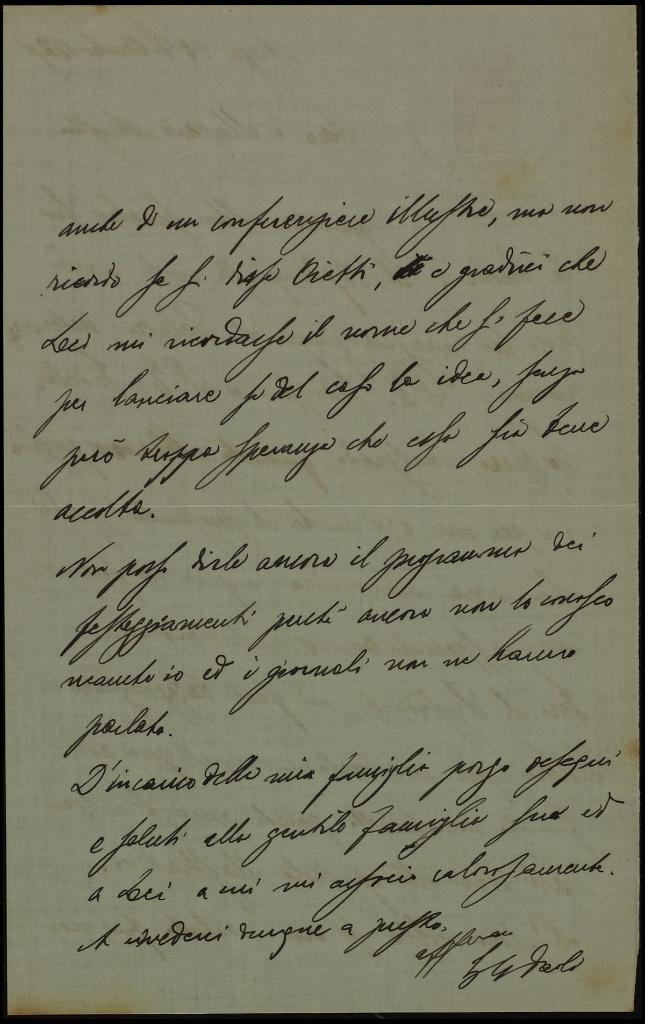 anche di un conferenziere illustre, ma non
ricordo se si disse Ojetti, e gradirei che
Lei mi ricordasse il nome che si fece
per lanciare se del caso la idea, senza
però troppa speranza che essa sia bene
accolta.
Non posso dirle ancora il programma dei
festeggiamenti perchè ancora non lo conosco
neanche io ed i giornali non ne hanno
parlato.
D'incarico della mia famiglia porgo ossequi
e saluti alla gentile famiglia sua ed
a Lei a cui mi associo calorosamente.
A rivederci dunque a presto.